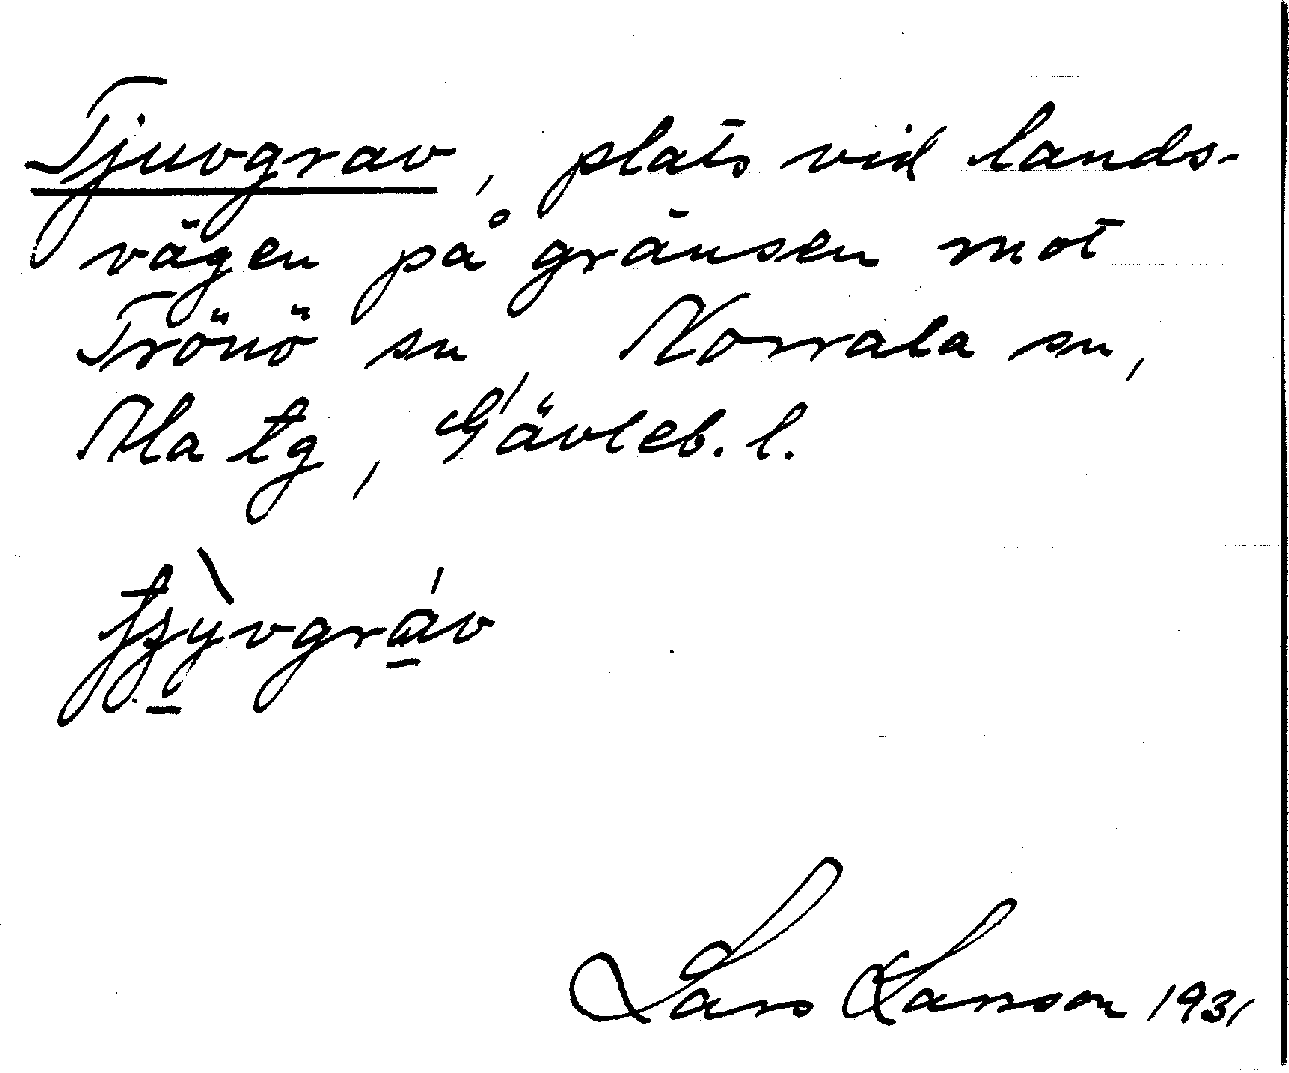 Tjuvgrav, plats vid lands-
vägen på gränsen mot
Trönö sn, Norrala sn,
Ala tg, Gävleb. l.
Lars Larsson 1931